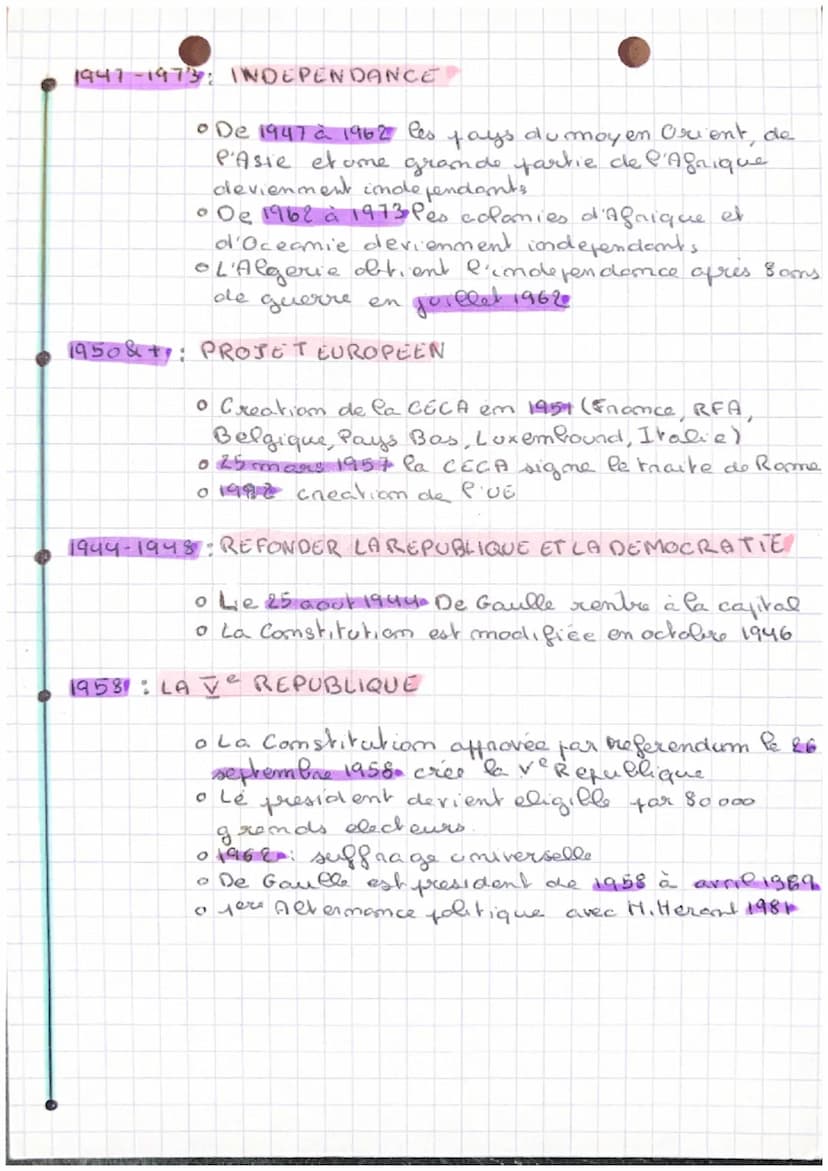 1947-1973: INDEPENDANCE
• De 1947 à 1962 les pays du moyen Orient, de
l'Asie et une grande partie de l'Afrique
deviennent independants
• De 1962 à 1973 les colonies d'Afrique et
d'Oceanie deviennent independants
• L'Algerie obtient l'independance après 8 ans
de guerre en juillet 1962
1950 & +: PROJET EUROPEEN
• Creation de la CECA en 1951 (France, RFA,
Belgique, Pays Bas, Luxembound, Italie)
• 25 mars 1957 la CECA signe le traite de Rome
• 1992 creation de l'UE
1944-1948: REFONDER LA REPUBLIQUE ET LA DEMOCRATIE
• Le 25 aout 1944 De Gaulle rentre à la capital
• La Constitution est modifiée en octobre 1946
1958: LA Ve REPUBLIQUE
• La Constitution approvée par referendum le 26
septembre 1958 crée la Ve Republique
• Le president devient eligible par 80 000
grands electeurs.
• 1962: suffrage universelle
• De Gaulle est president de 1958 à avril 1969
• 1ere Alternance politique avec M. 1981